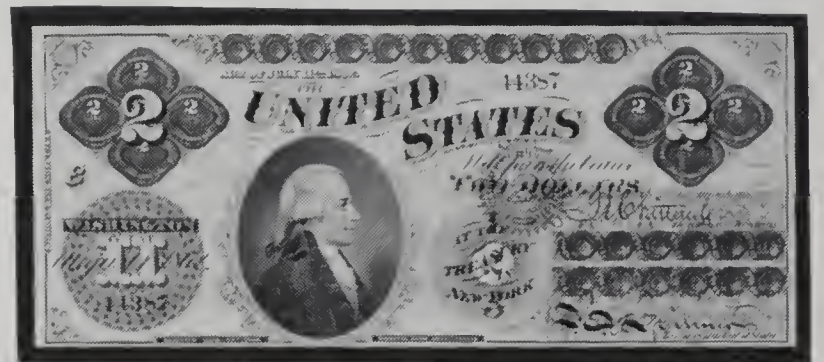 2 2
2 2 2 14387 2 2 2
THE
UNITED
STATES
2 2
Will pay to bearer
TWO DOLLARS
WASHINGTON
II
14387
AT THE
TREASURY
NEW YORK